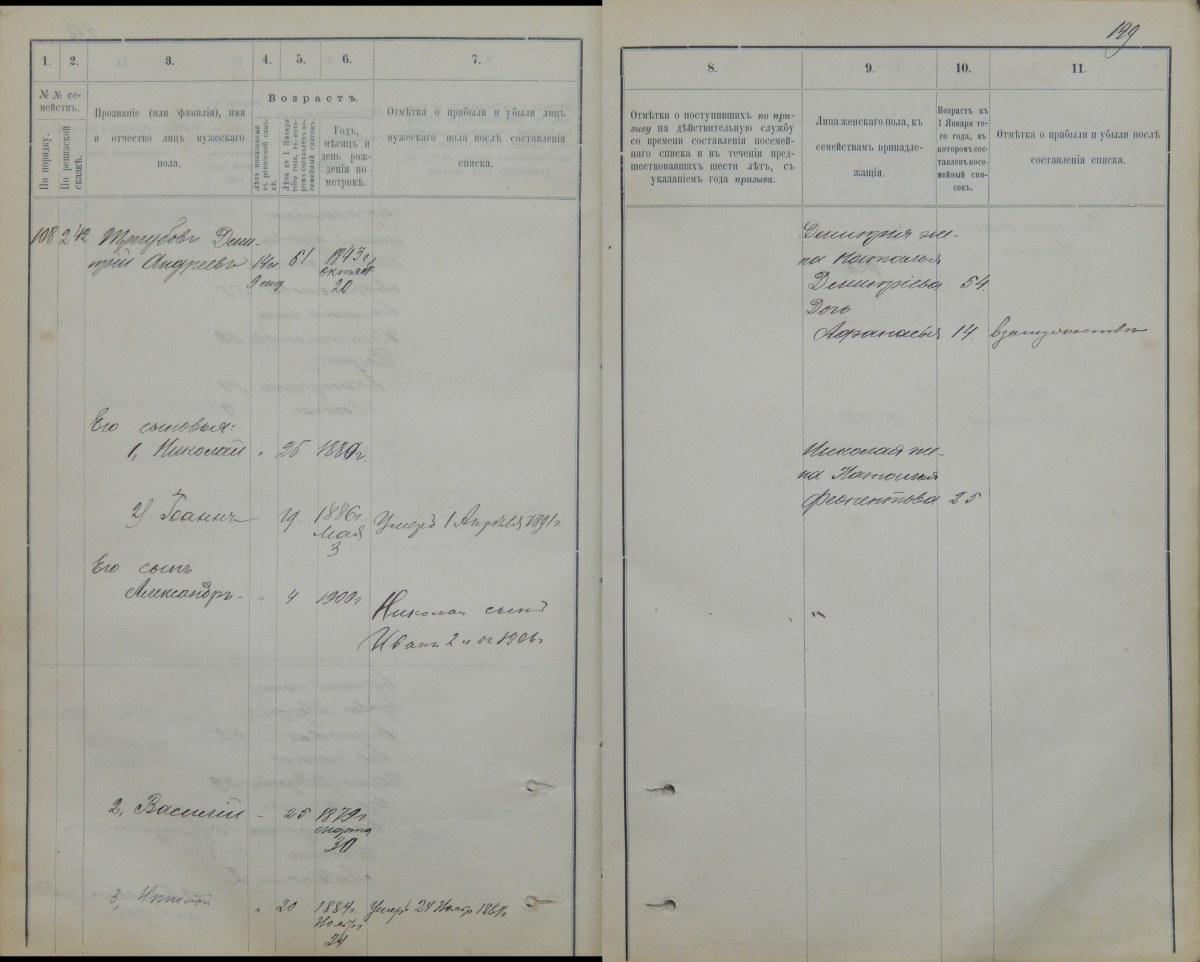 149
1.
2.
3.
4.
5.
6.
7.
№№ се-
мействъ.
По порядку.
По ревизской
сказкѣ.
Прозваніе (или фамилія), имя
и отчество лицъ мужескаго
пола.
Возрастъ.
Лѣта показанныя
въ ревизской сказ-
кѣ.
Лѣта къ 1 Января
того года, въ кото-
ромъ составленъ по-
семейный списокъ.
Годъ,
мѣсяцъ и
день рож-
денія по
метрикѣ.
Отмѣтка о прибыли и убыли лицъ
мужескаго пола послѣ составленія
списка.
108 242
Дми-
трій Андреевъ
61
1843 г.
октября
20
Его сыновья:
1, Николай
25
1880 г.
2) Іоаннъ
19.
1886 г.
Мая
3
Умеръ 1 Апрѣля 1891 г.
Его сынъ
Александръ
4
1900 г.
Николая сынъ
Иванъ
1906 г.
2, Василій
25
1879 г.
марта
30
3,
20
1884 г.
Ноябр.
24
Умеръ 24 Ноябр.
8.
9.
10.
11.
Отмѣтки о поступившихъ по при-
зыву на дѣйствительную службу
со времени составленія посемей-
наго списка и въ теченіи пред-
шествовавшихъ шести лѣтъ, съ
указаніемъ года призыва.
Лица женскаго пола, къ
семействамъ принадле-
жащія.
Возрастъ къ
1 Января то-
го года, въ
которомъ сос-
тавленъ посе-
мейный спи-
сокъ.
Отмѣтка о прибыли и убыли послѣ
составленія списка.
Димитрія же-
на Наталья
Димитріева 54.
Дочь
Афанасья 14. взамужествѣ
Николая же-
на Наталья
25